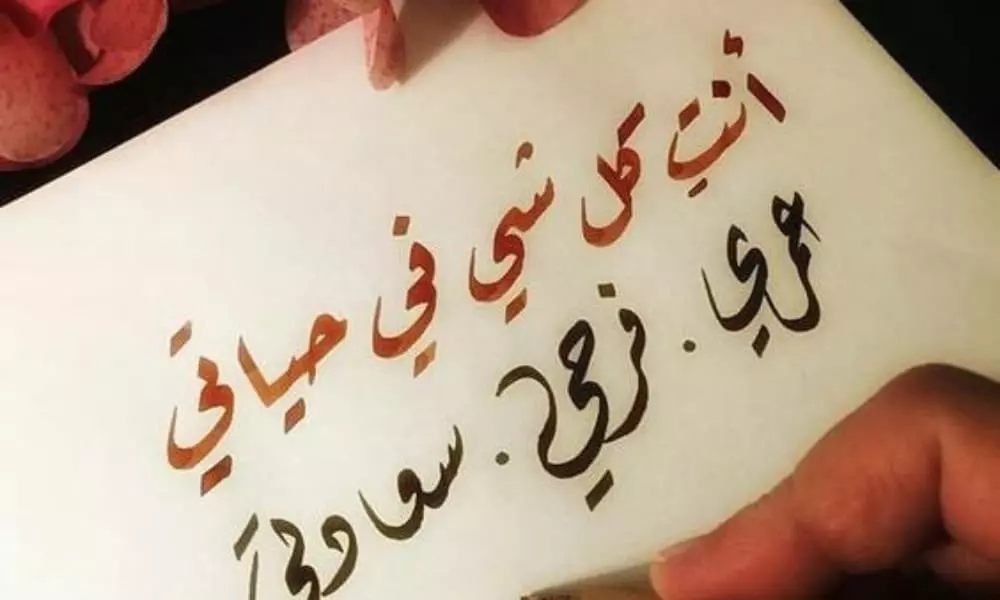 أنتِ كل شي في حياتي
عمري . فرحي . سعادتي